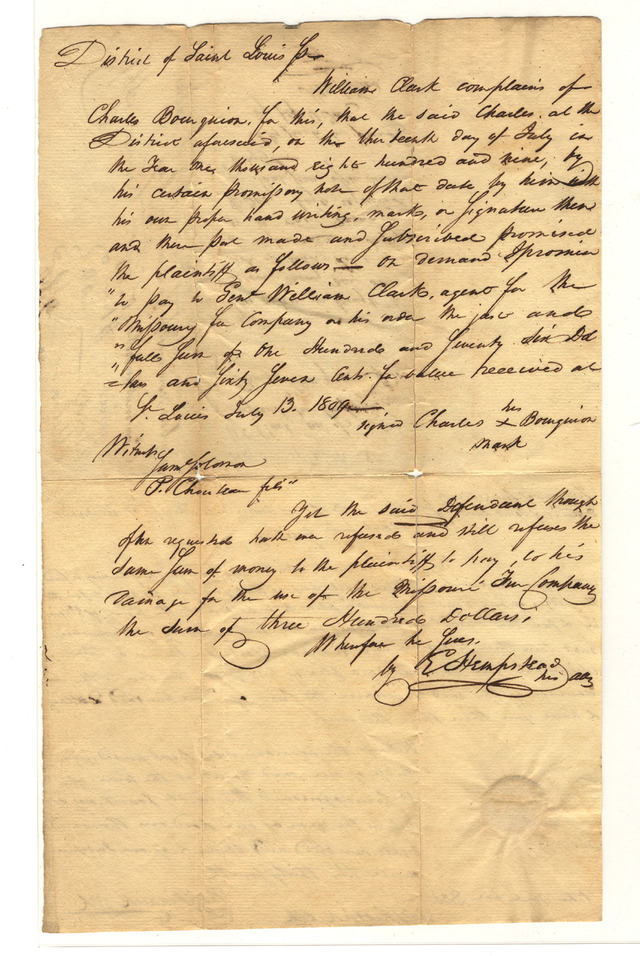 District of Saint Louis ss
William Clark complains of
Charles Bourguion, for this, that the said Charles, at the
District aforesaid, on the thirteenth day of July in
the Year one thousand eight hundred and nine, by
his certain promissory note of that date by him with
his own proper hand writing, mark, or signature then
and there put made and subscribed promised
the plaintiff as follows — On demand I promise
"to pay to Genl William Clark, agent for the
"Missoury fur Company or his order the just and
"full Sum of One Hundred and Seventy Six Dol
"=lars and Sixty Seven Cents for value received at
St. Louis July 13. 1809 —
signed Charles his x mark Bourguion
Witness
Saml Solomon
P. Chouteau fils"
Yet the said Defendant though
often requested hath ever refused and still refuses the
same sum of money to the plaintiff to pay, to his
damage for the use of the Missouri Fur Company
the sum of three Hundred Dollars;
Wherefore he Sues,
by E Hempstead
his atty